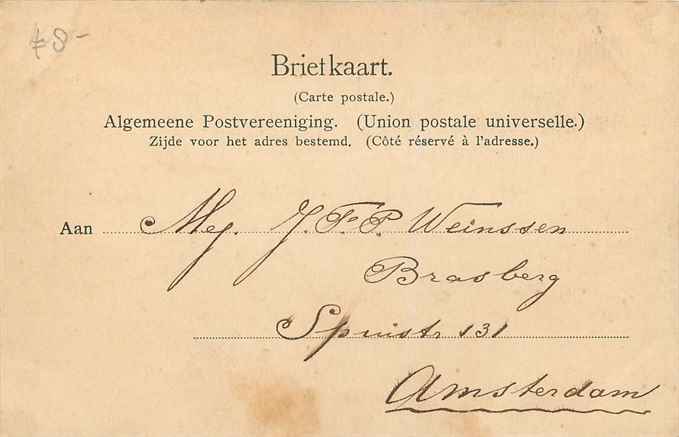 f 8-
Briefkaart.
(Carte postale.)
Algemeene Postvereeniging. (Union postale universelle.)
Zijde voor het adres bestemd. (Côté réservé à l'adresse.)
Aan Mej. J. F. P. Weinssen
Brasberg
Spuistr 131
Amsterdam